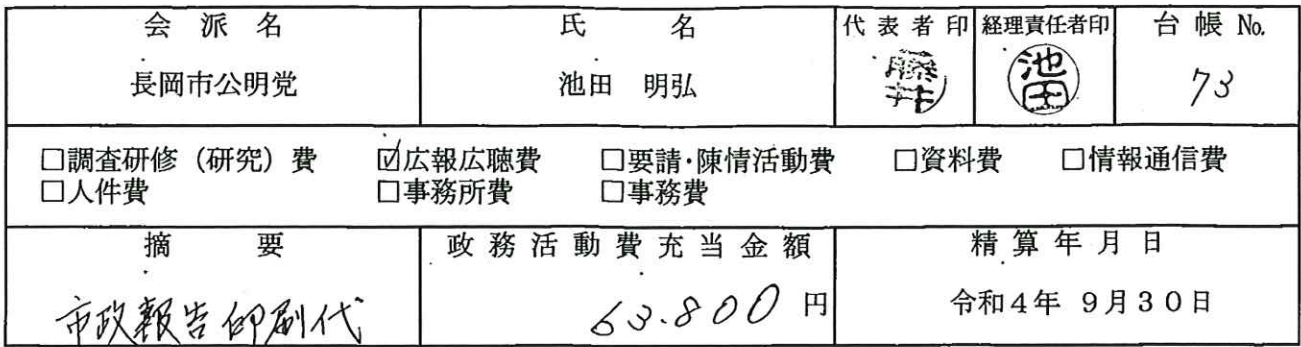 会派名 氏名 代表者印 経理責任者印 台帳 No.
長岡市公明党 池田 明弘 藤井 池田 73
□調査研修（研究）費 ☑広報広聴費 □要請・陳情活動費 □資料費 □情報通信費
□人件費 □事務所費 □事務費
摘要 政務活動費充当金額 精算年月日
市政報告印刷代 63.800円 令和4年 9月30日